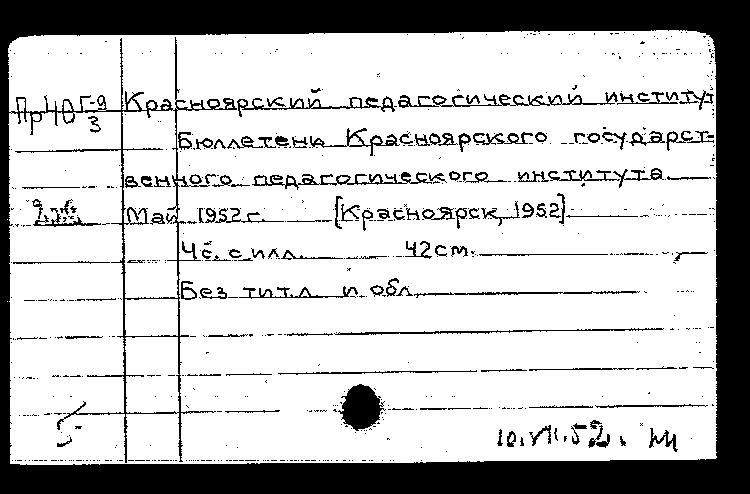 Пр40 Г-9/3 Красноярский педагогический институт
Бюллетень Красноярского государст-
венного педагогического института.
Май 1952 г. [Красноярск, 1952].
4с. с илл. 42см.
Без тит.л. и обл.
10.VII.52.